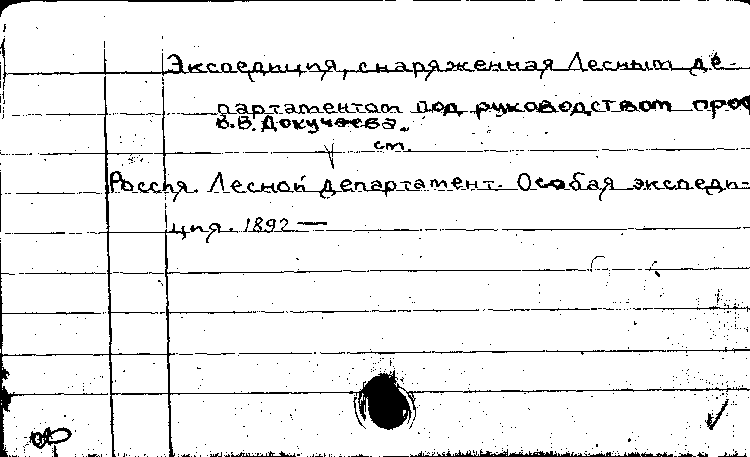 Экспедиция, снаряженная Лесным де-
партаментом под руководством проф
В.В. Докучаева.
см.
Россия. Лесной департамент. Особая экспеди-
ция. 1892 —